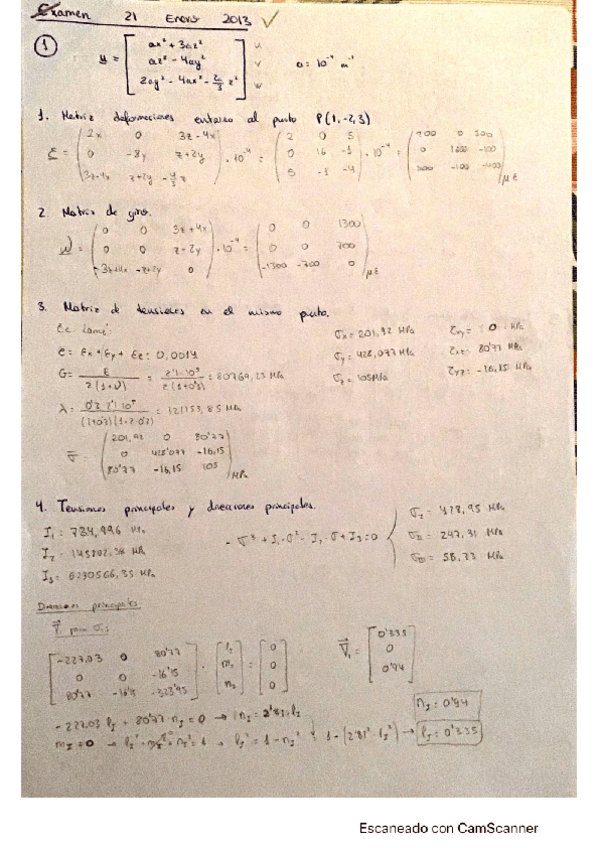 Examen 21 Enero 2013 ✓
① u = [ax² + 3az² ; az² - 4ay² ; 2ay² - 4ax² - 2a/3 z²] u v w a = 10⁻⁴ m⁻¹
1. Matriz deformaciones entorno al punto P(1,-2,3)
ε = (2x 0 3z-4x ; 0 -8y z+2y ; 3z-4x z+2y -4/3 z) · 10⁻⁴ = (2 0 5 ; 0 16 -1 ; 5 -1 -4) · 10⁻⁴ = (200 0 500 ; 0 1600 -100 ; 500 -100 -400) με
2 Matriz de giros.
= (0 0 3z+4x ; 0 0 z-2y ; -3z+4x -z+2y 0) · 10⁻⁴ = (0 0 1300 ; 0 0 700 ; -1300 -700 0) με
3. Matriz de tensiones en el mismo punto.
Ec Lamé:
e = εx + εy + εz = 0,0014
G = E / 2(1+ν) = 2'1·10⁵ / 2(1+0'3) = 80769,23 MPa
λ = 0'3·2'1·10⁵ / (1+0'3)(1-2·0'3) = 121153,85 MPa
σx = 201,92 MPa τxy = 0 MPa
σy = 428,077 MPa τxz = 80'77 MPa
σz = 105 MPa τyz = -16,15 MPa
σ = (201,92 0 80'77 ; 0 428'077 -16,15 ; 80'77 -16,15 105) MPa
4. Tensiones principales y direcciones principales.
I₁ = 734,996 MPa
I₂ = MPa
I₃ = 6230566,35 MPa
-σ³ + I₁·σ² - I₂·σ + I₃ = 0
σI = 428,95 MPa
σII = 247,31 MPa
σIII = 58,73 MPa
Direcciones principales
V₁ para σI:
[-227.03 0 80'77 ; 0 0 -16'15 ; 80'77 -16'15 -323'95] · [lI ; mI ; nI] = [0 ; 0 ; 0] V₁ = [0'335 ; 0 ; 0'94]
-227.03 lI + 80'77 nI = 0 → nI = 2'81·lI nI = 0'94
mI = 0 → lI² + mI² + nI² = 1 → lI² = 1 - nI² = 1 - (2'81² · lI²) → lI = 0'335
Escaneado con CamScanner